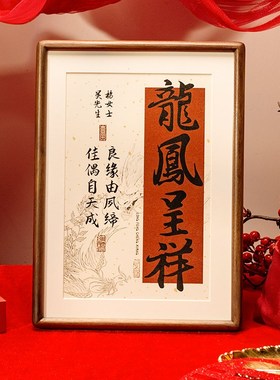 龍鳳呈祥
良缘由夙缔
佳偶自天成
楊女士
吴先生